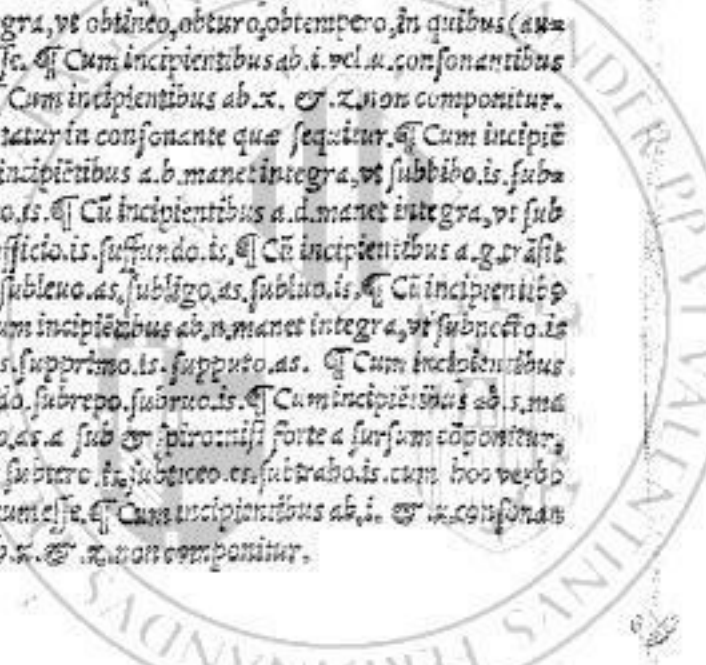 gra,vt obtineo,obturo,obtempero,in quibus(au=
ſſe.¶ Cum incipientibus ab.i.vel.u.conſonantibus
Cum incipientibus ab.x. &.z.non componitur.
tatur in conſonante quæ ſequitur.¶ Cum incipiẽ
incipiẽtibus a.b.manet integra,vt ſubbibo.is.ſub=
o.is.¶ Cũ incipientibus a.d.manet integra,vt ſub
fficio.is.ſuffundo.is.¶ Cũ incipientibus a.g.trãſit
ſubleuo.as.ſubligo.as.ſubluo.is.¶ Cũ incipientibꝰ
um incipiẽtibus ab.n.manet integra,vt ſubnecto.is
s.ſupprimo.is.ſupputo.as. ¶ Cum incipientibus
do.ſubrepo.ſubruo.is.¶ Cum incipiẽtibus ab.s.mã
o.as.a ſub & ſpiro:niſi forte a ſurſum cõponitur,
ſubtero.is.ſubticeo.es.ſubtraho.is.cum hoc verbo
sum eſſe.¶ Cum incipientibus ab.i. &.u.conſonan
b.x.&.z.non componitur.